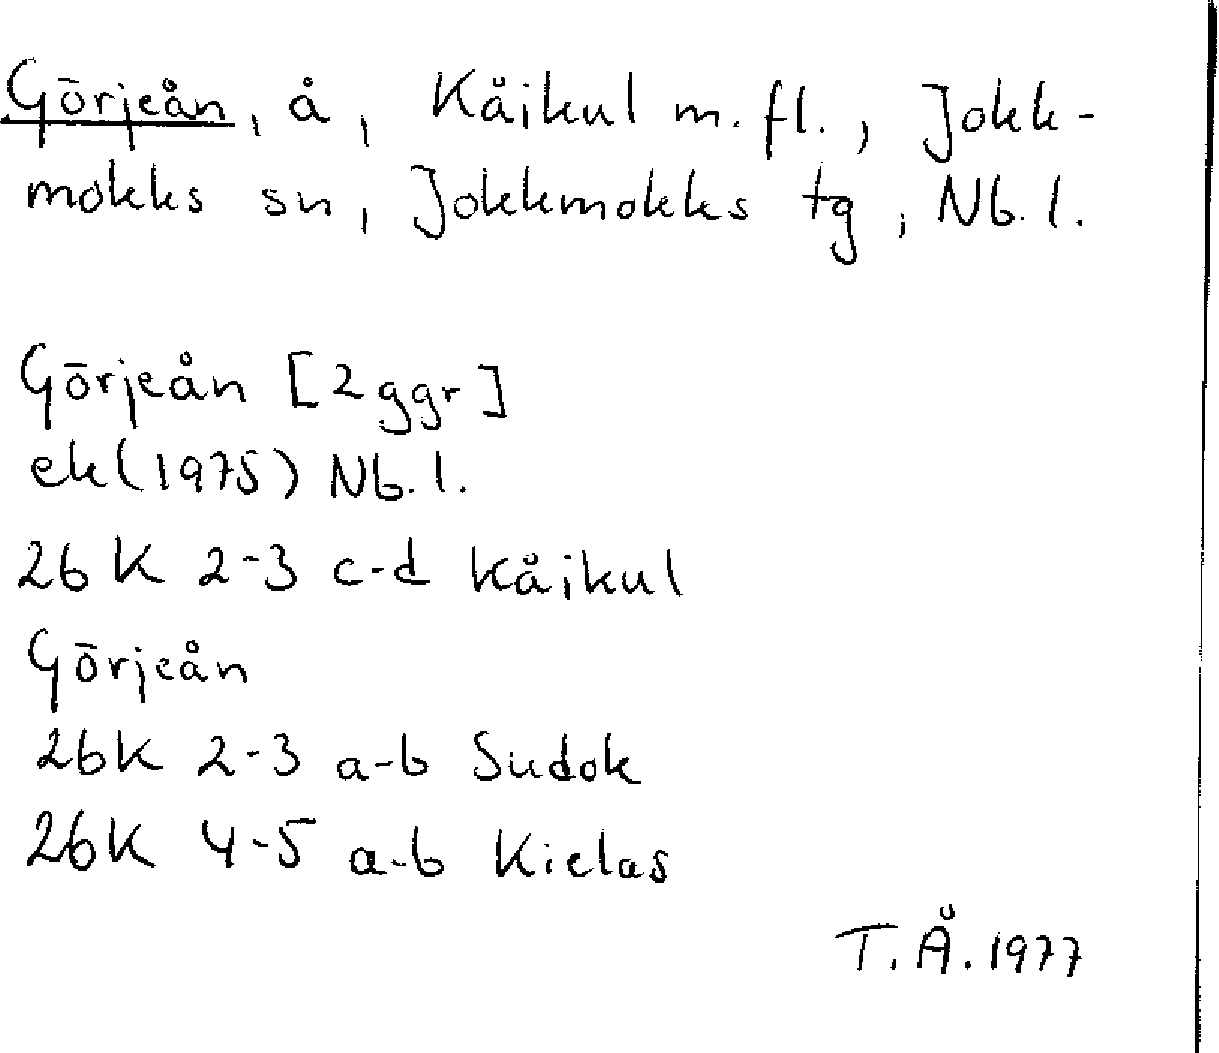 Görjeån, å, Kåikul m.fl., Jokk-
mokks sn, Jokkmokks tg, Nb.l.
Görjeån [2 ggr]
ek(1975) Nb.l.
26 K 2-3 c-d Kåikul
Görjeån
26K 2-3 a-b Sudok
26K 4-5 a-b Kielas
T.Å.1977